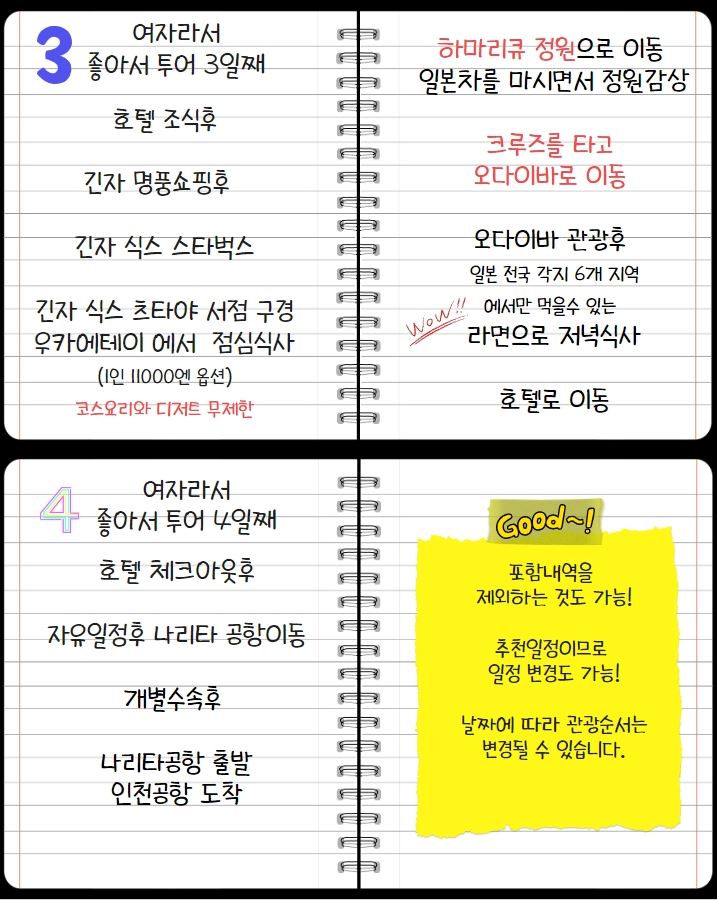 3
여자라서
좋아서 투어 3일째
호텔 조식후
긴자 명풍쇼핑후
긴자 식스 스타벅스
긴자 식스 츠타야 서점 구경
우카에테이 에서 점심식사
(1인 11000엔 옵션)
코스요리와 디저트 무제한
하마리큐 정원으로 이동
일본차를 마시면서 정원감상
크루즈를 타고
오다이바로 이동
오다이바 관광후
일본 전국 각지 6개 지역
Wow!!
에서만 먹을수 있는
라면으로 저녁식사
호텔로 이동
4
여자라서
좋아서 투어 4일째
호텔 체크아웃후
자유일정후 나리타 공항이동
개별수속후
나리타공항 출발
인천공항 도착
Good~!
포함내역을
제외하는 것도 가능!
추천일정이므로
일정 변경도 가능!
날짜에 따라 관광순서는
변경될 수 있습니다.